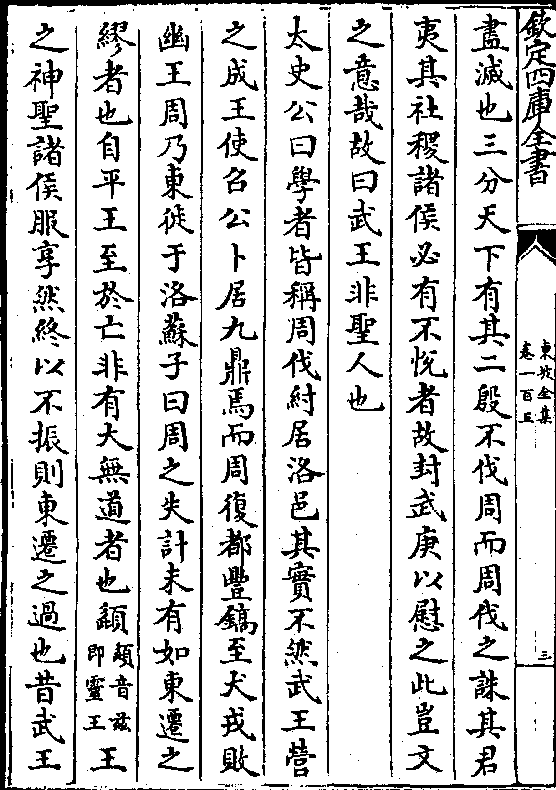 欽定四庫全書
東坡全集
卷一百五
三
盡滅也三分天下有其二殷不伐周而周伐之誅其君
夷其社稷諸侯必有不悅者故封武庚以慰之此豈文
之意哉故曰武王非聖人也
太史公曰學者皆稱周伐紂居洛邑其實不然武王營
之成王使召公卜居九鼎焉而周復都豐鎬至犬戎敗
幽王周乃東徙于洛蘇子曰周之失計未有如東遷之
繆者也自平王至於亡非有大無道者也頿頿音兹即靈王王
之神聖諸侯服享然終以不振則東遷之過也昔武王